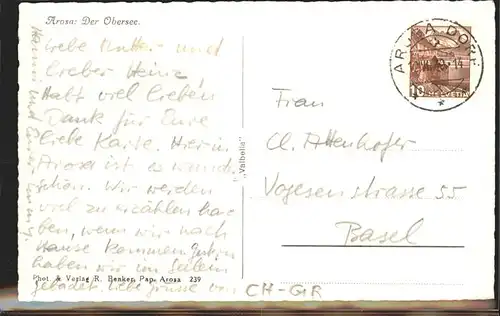 Arosa: Der Obersee.
Liebe Mutter und
lieber Heinz,
Habt viel lieben
Dank für Eure
liebe Karte. Hier in
Arosa ist es wunder
schön. Wir werden
viel zu erzählen ha
ben, wenn wir nach
Hause kommen.
haben wir im
gebadet. Liebe Grüsse von
Phot. & Verlag R. Henker, Pap. Arosa 239
„Valbella"
AROSA DORF
10
HELVETIA
Frau
Cl. Attenhofer
Vogesenstrasse 55
Basel
CH-GR